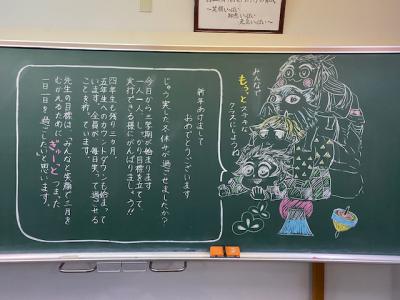 〜笑顔いっぱい
知恵いっぱい
元気いっぱい〜
みんなで
もっと ステキな
クラスにしようね！
新年あけまして
おめでとうございます
じゅう実した冬休みが過ごせましたか？
今日から三学期が始まります
一人一人がしっかり目標を立てて、
実行できる様にがんばりましょう!!
四年生も残り三ヵ月。
五年生へのカウントダウンも始まって
います。全員が、毎日笑って過ごせる
ことを祈っています。
先生の目標は、みんなと笑顔で三月を
むかえるために、ぎゅーっとつまった
一日一日を過ごしたいと思います。